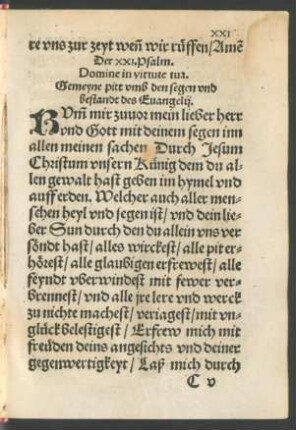 XXI
re vns zur zeyt weñ wir rüffen/Amẽ
Der XXI. Psalm.
Domine in virtute tua.
Gemeyne pitt vmb den segen vnd
bestandt des Euangelij.
KVm̃ mir zuuor mein lieber herr
vnd Gott mit deinem segen inn
allen meinen sachen Durch Jesum
Christum vnsern Künig dem du al-
len gewalt hast geben im hymel vnd
auff erden. Welcher auch aller men-
schen heyl vnd segen ist/ vnd dein lie-
ber Sun durch den du allein vns ver
sőndt hast/ alles wirckest/ alle pit er-
hőrest/ alle glaubigen erfrewest/ alle
feyndt vberwindest mit fewer ver-
brennest/ vnd alle jre lere vnd werck
zu nichte machest/ veriagest/ mit vn-
glück belestigest/ Erfrew mich mit
freüden deins angesichts vnd deiner
gegenwertigkeyt/ Laß mich durch
C v